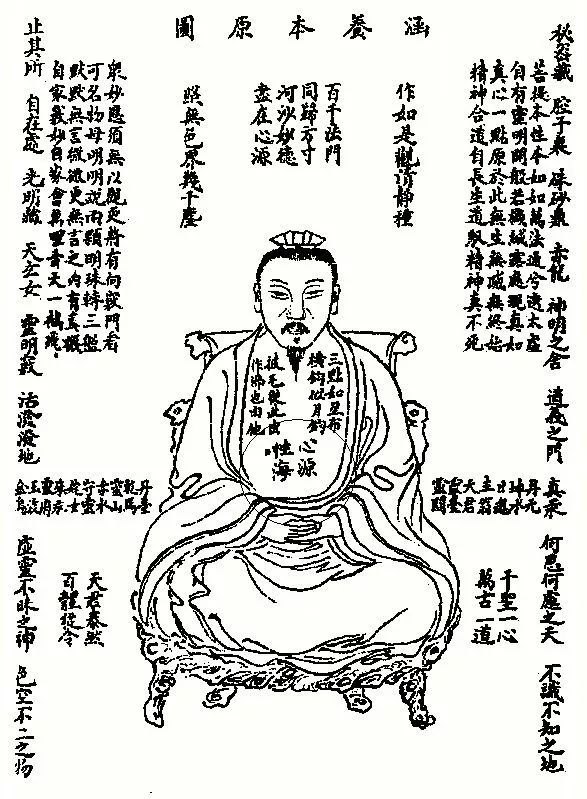 涵養本原圖
秘密藏 腔子裏 硃砂鼎 赤龍 神明之舍 道義之門 真汞 何思何慮之天 不識不知之地
菩提本性本如如萬法通兮透太虛
自有靈明開般若機緘露處現真如
真心一點原於此無生無滅無終始
精神合道自長生道馭精神真不死
作如是觀清靜種
百千法門
同歸方寸
河沙妙德
盡在心源
照無色界幾千塵
衆妙應須無以觀更將有向竅門看
可名物母明明說兩顆明珠轉三盤
默默無言微微更無言之內有真機
自家義妙自家會萬里青天一鶴飛
止其所 自在處 光明藏 天玄女 靈明竅 活潑潑地 虛靈不昧之神 色空不二之物
三點如星布
橫鉤似月鈎
披毛從此出
作佛也由他
心源
性海
丹元
神水
日魂
主翁
天君
靈臺
靈關
丹臺
乾馬
靈山
赤水
守靈
姹女
朱衣
靈月
玉液
金烏
千聖一心
萬古一道
天君泰然
百體從令